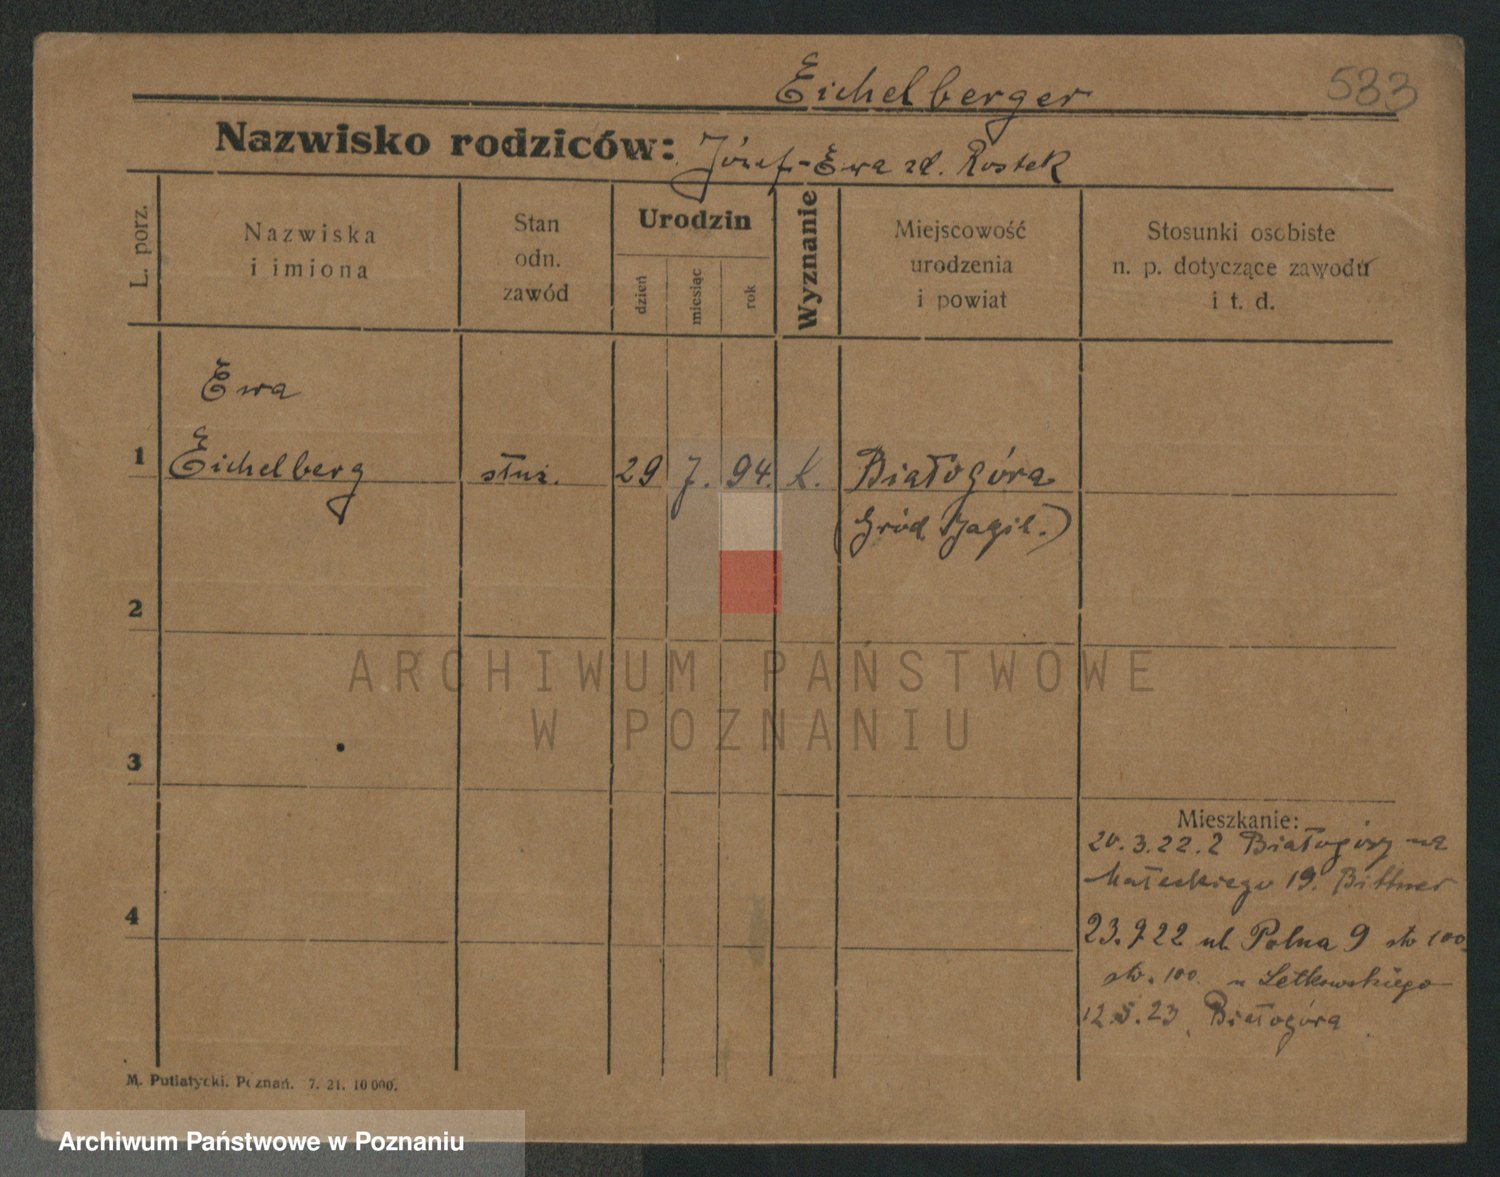 Eichelberger
533
Nazwisko rodziców: Józef - Ewa zd. Rostek
L. porz.
Nazwiska
i imiona
Stan
odn.
zawód
Urodzin
dzień
miesiąc
rok
Wyznanie
Miejscowość
urodzenia
i powiat
Stosunki osobiste
n. p. dotyczące zawodu
i t. d.
Ewa
1 Eichelberg służ. 29 7. 94. k. Białogóra
(Gród Jagil.)
2
ARCHIWUM PAŃSTWOWE
W POZNANIU
3
Mieszkanie:
20.3.22. z Białogóry na
Małeckiego 19. Bittner
4
23.9 22 ul. Polna 9 stw 100
stw. 100. u Letkowskiego
12.5.23, Białogóra
M. Putiatycki. Poznań. 7. 21. 10 000.
Archiwum Państwowe w Poznaniu